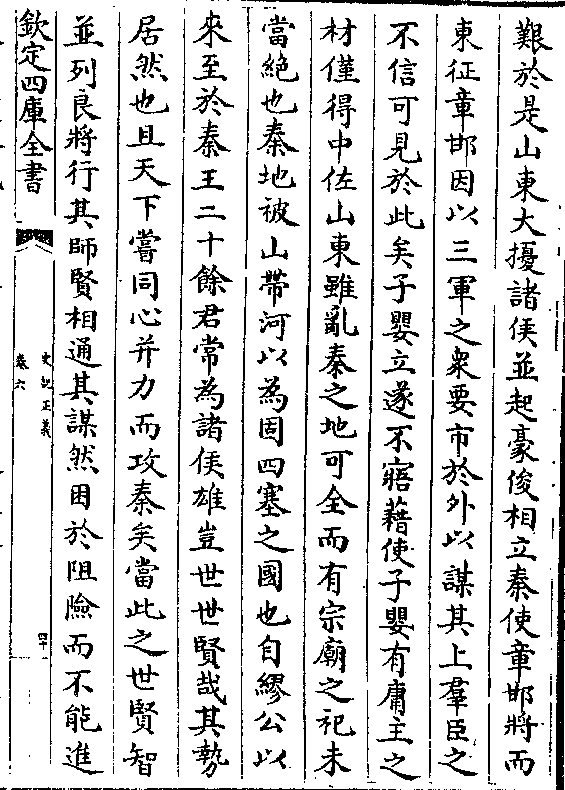 艱於是山東大擾諸侯並起豪俊相立秦使章邯將而
東征章邯因以三軍之衆要市於外以謀其上羣臣之
不信可見於此矣子嬰立遂不寤藉使子嬰有庸主之
材僅得中佐山東雖亂秦之地可全而有宗廟之祀未
當絶也秦地被山帶河以為固四塞之國也自繆公以
來至於秦王二十餘君常為諸侯雄豈世世賢哉其勢
居然也且天下嘗同心并力而攻秦矣當此之世賢智
並列良將行其師賢相通其謀然困於阻險而不能進
欽定四庫全書
史記正義
卷六
四十